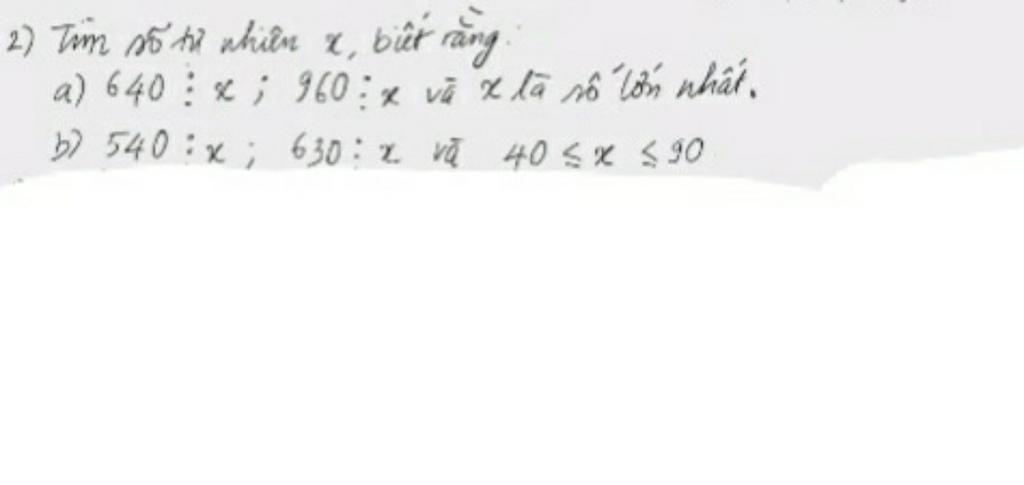 2) Tìm số tự nhiên x, biết rằng:
a) 640 ⋮ x ; 960 ⋮ x và x là số lớn nhất.
b) 540 ⋮ x ; 630 ⋮ x và 40 ≤ x ≤ 90